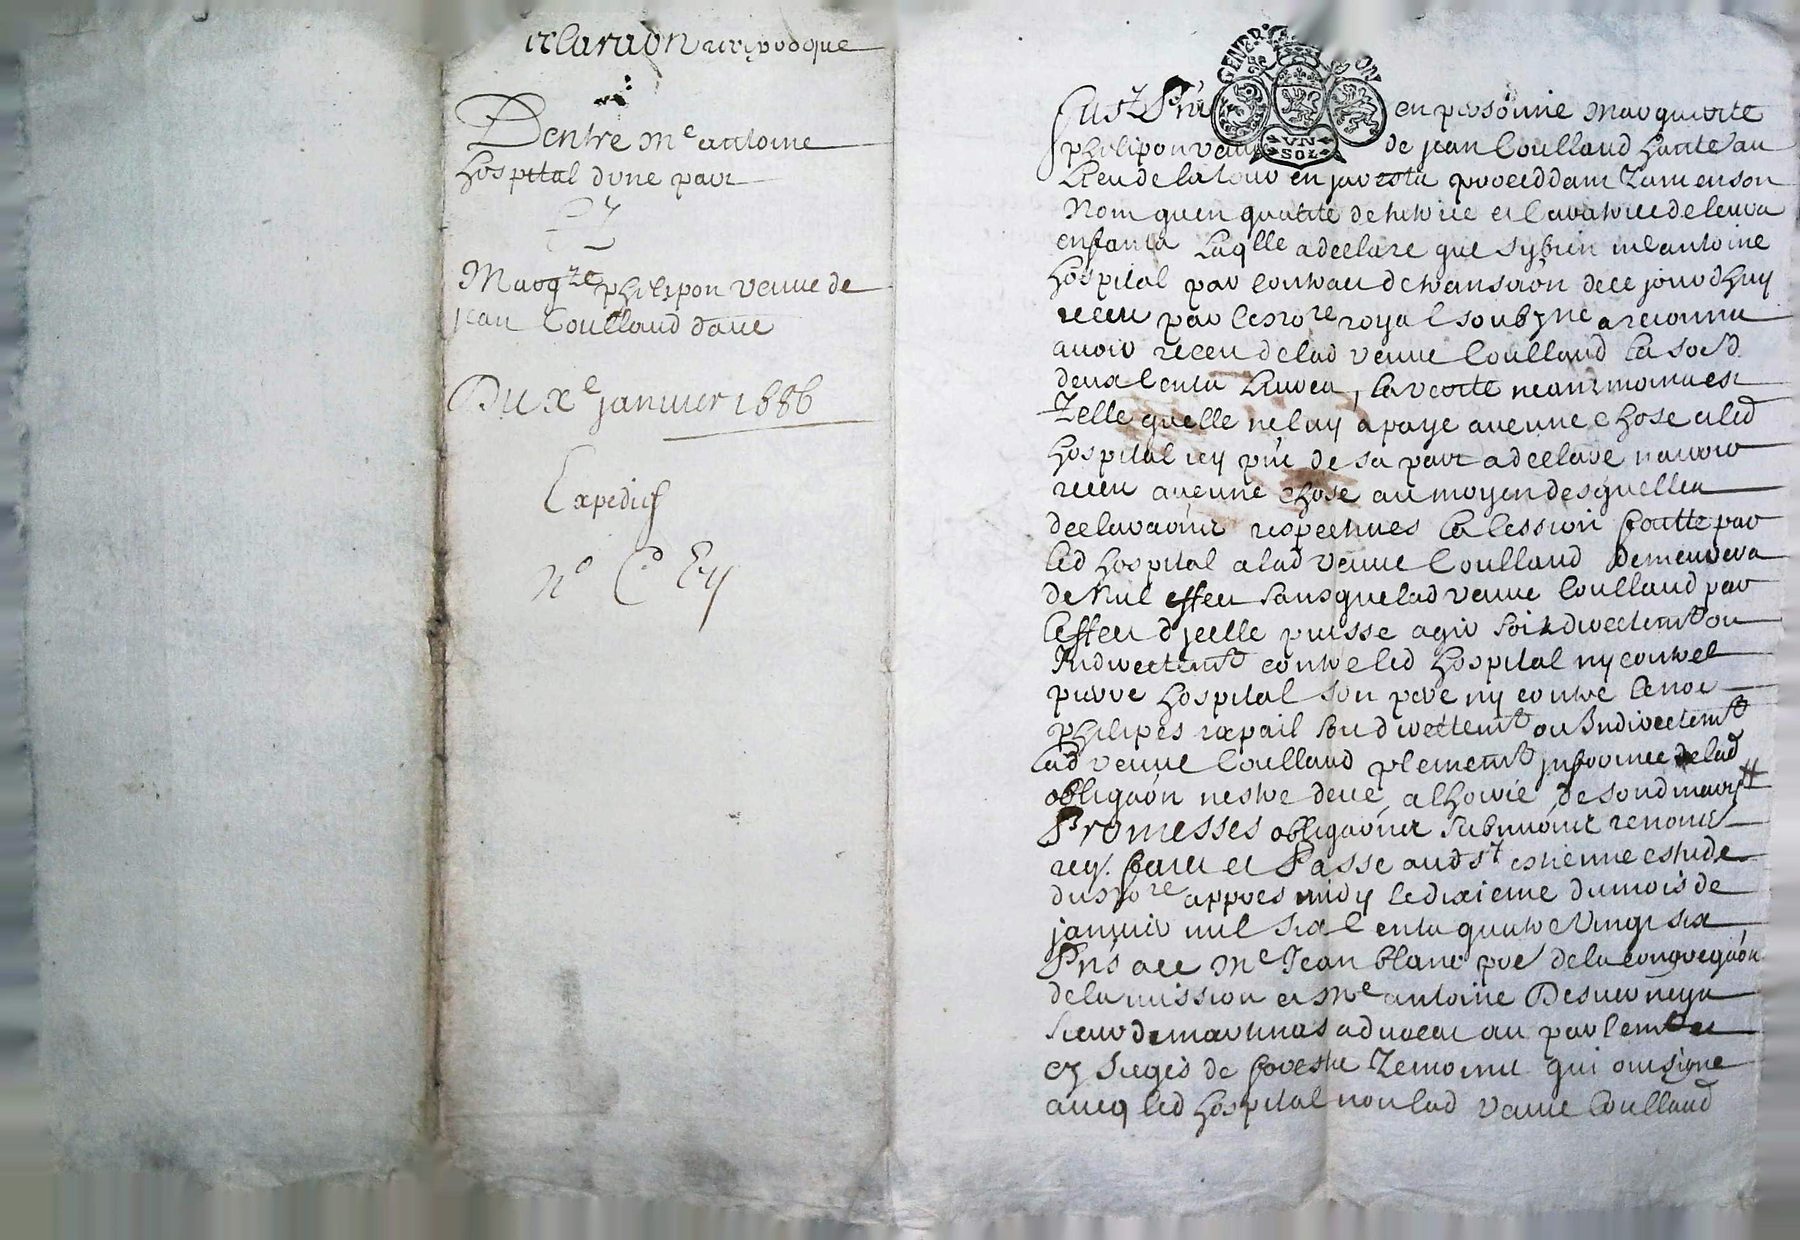 reciproque
Dentre Me antoine
hospital dune part
Et
Margte philipon veuve de
jean Coulland dautre
Du xe janvier 1686
Expedié
GENER ON
VN
SOL
Fust Pnt en personne Marguerite
philipon veuve de jean Coulland hante au
Lieu de la tour en
Nom quen qualite de tutrice et de leurs
enfants Laqlle a declare que sy bien me antoine
hospital par de ce jourdhuy
receu par le nore royal soubzne a reconnu
avoir receu de lad veuve Coulland la so d
deux Cents Livres, la verite neantmoins est
Telle quelle ne luy a paye aucune chose et led
hospital icy pnt de sa part a declare navoir
receu aucune chose au moyen desquelles
declaraons respectives la Cession faitte par
led hospital a lad veuve Coulland demeurera
de Nul effeu sans que lad veuve Coulland par
leffeu dicelle puisse agir soit directemt ou
Indirectemt contre led hospital ny contre
pierre hospital son pere ny contre
philipes soit directemt ou Indirectemt
lad veuve Coulland plenemt informee de lad
obligaon nestre deue a de sond mary
Promesses obligaons submions renons
req. Faict et Passe aud st estienne estude
du nore appres midy le dixieme du mois de
janvier mil six Cents quatre Vingt six
Pns a ce Me Jean blanc de la congregaon
de la mission et Me antoine
sieur de advocat au parlemt et
ez sieges de forestz Temoins qui ont signe
avecq led hospital non lad veuve Coulland